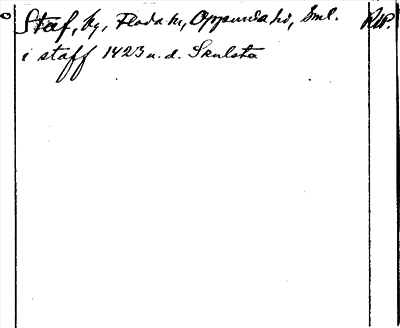 Staf, hg, Floda sn, Oppunda hd, Sml. Rep.
i staff 1423 u. d. Skulsta